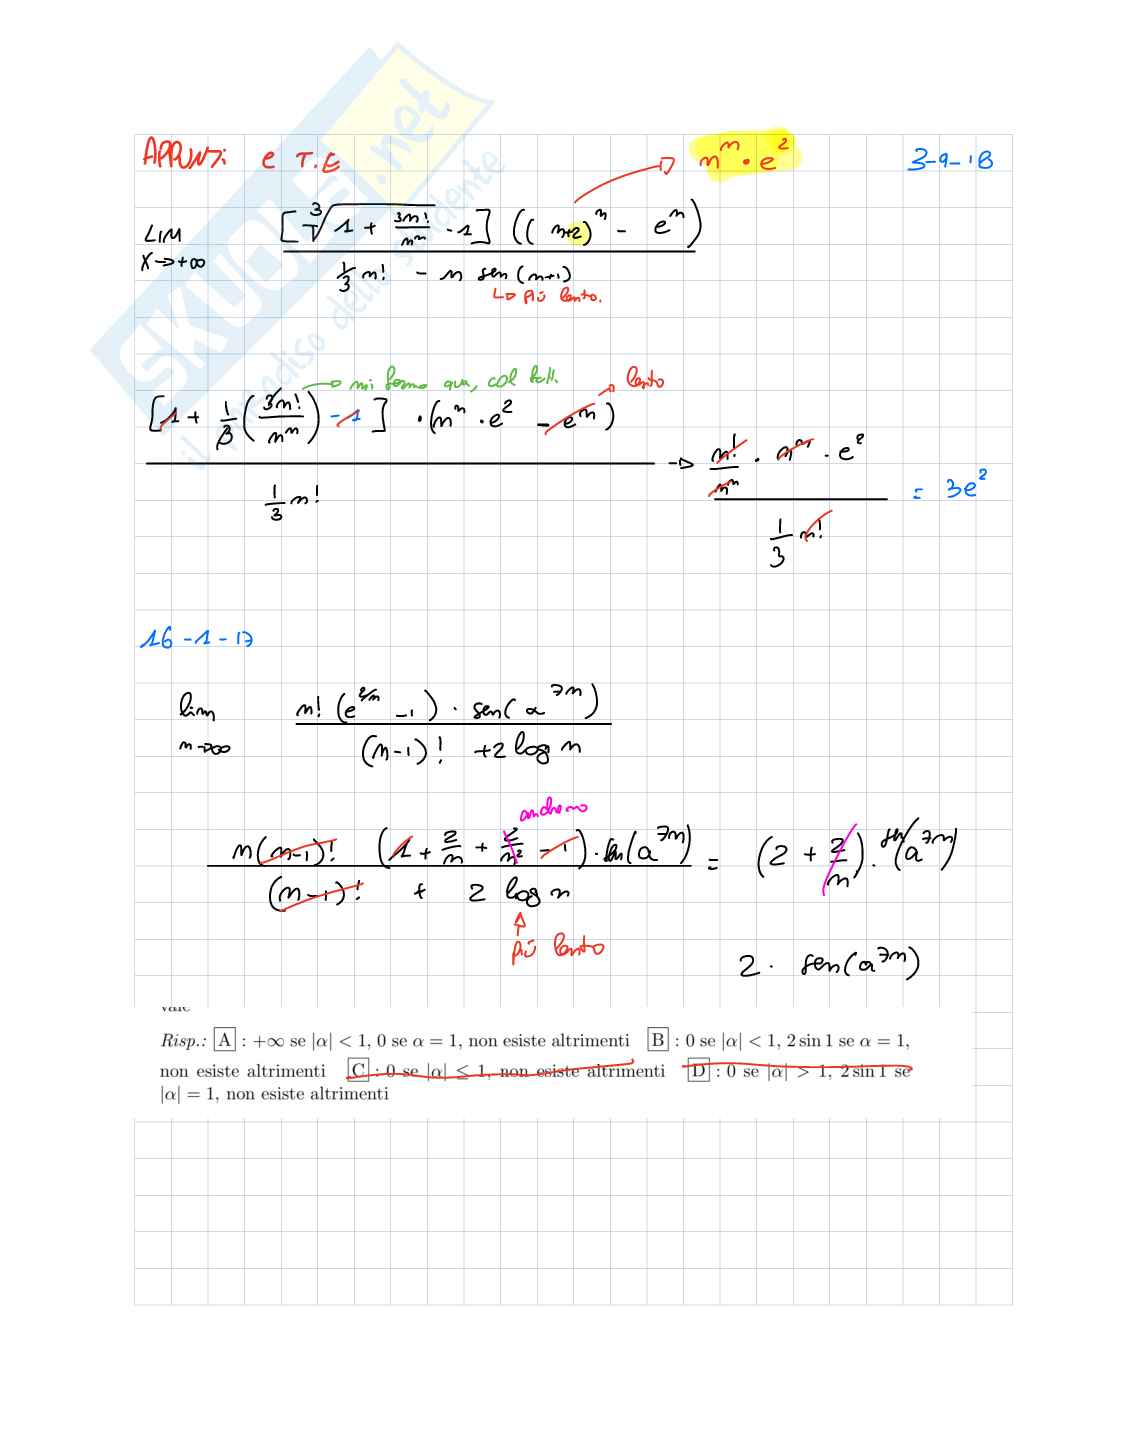 APPUNTI e T.E n^n · e^2 3-9-18
LIM x→+∞ [∛(1 + 3n!/n^n) - 1] ((n+2)^n - e^n) / (1/3 n! - n sen(n+1))
↳ più lento.
→ mi fermo qua, col fatt. → lento
[1 + 1/3 (3n!/n^n) - 1] · (n^n · e^2 - e^n) / (1/3 n!) → (n!/n^n · n^n · e^2) / (1/3 n!) = 3e^2
16-1-17
lim n→∞ n! (e^{2/n} - 1) · sen(α^{7n}) / ((n-1)! + 2 log n)
andremo
n(n-1)! (1 + 2/n + 2/n^2 - 1) · sen(α^{7n}) / ((n-1)! + 2 log n) = (2 + 2/n) · sen(α^{7n})
più lento
2 · sen(α^{7n})
vale
Risp.: A : +∞ se |α| < 1, 0 se α = 1, non esiste altrimenti B : 0 se |α| < 1, 2 sin 1 se α = 1,
non esiste altrimenti C : 0 se |α| ≤ 1, non esiste altrimenti D : 0 se |α| > 1, 2 sin 1 se
|α| = 1, non esiste altrimenti
SKUOLA.net
il paradiso dello studente